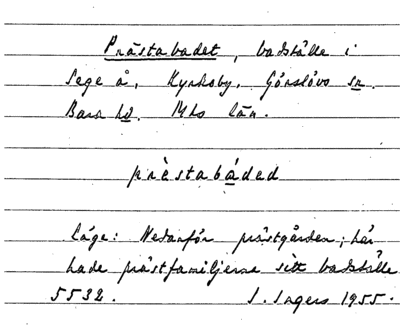 Prästabadet, badställe i
Sege å, Kyrkoby, Görslövs sn.
Bara hd. Mhs län.
prèstabáded
läge: Nedanför prästgården; här
hade prästfamiljerna sitt badställe
5532. I. Ingers 1955.